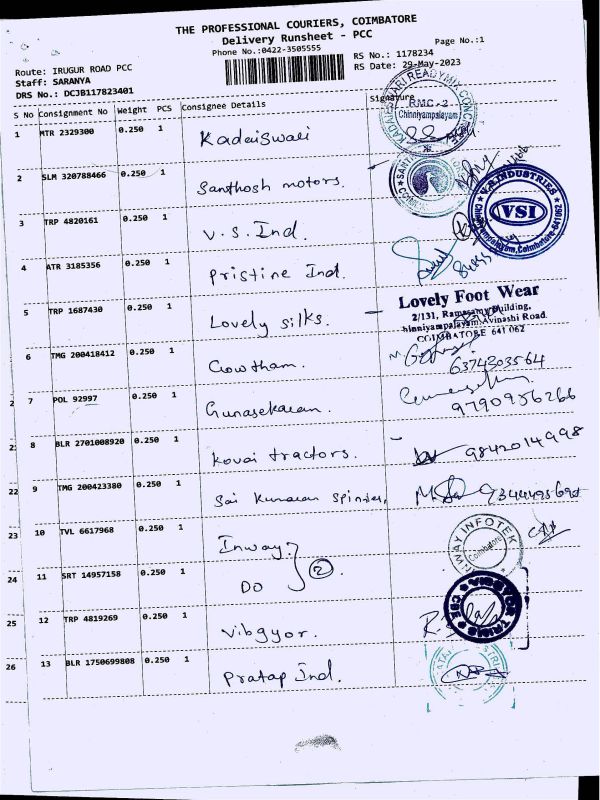 THE PROFESSIONAL COURIERS, COIMBATORE
Delivery Runsheet - PCC
Phone No.:0422-3505555
Page No.:1
RS No.: 1178234
RS Date: 29-May-2023
Route: IRUGUR ROAD PCC
Staff: SARANYA
DRS No.: DCJB117823401
S No Consignment No Weight PCS Consignee Details Signature
1 MTR 2329300 0.250 1 Kadeiswari
KADAIESWARI READYMIX CONCRETE
RMC-2
Chinniyampalayam
2 SLM 320788466 0.250 1 Santhosh motors.
3 TRP 4820161 0.250 1 V.S. Ind.
V.S. INDUSTRIES
VSI
Chinniyampalayam, Coimbatore-641062
4 ATR 3185356 0.250 1 Pristine Ind.
5 TRP 1687430 0.250 1 Lovely silks.
Lovely Foot Wear
2/131, Ramasamy Building,
hinniyampalayam Avinashi Road.
COIMBATORE 641 062
6 TMG 200418412 0.250 1 Gowtham.
6374203564
2 7 POL 92997 0.250 1 Gunasekaran.
9790956266
2 8 BLR 2701008920 0.250 1 Kovai tractors.
9842014998
22 9 TMG 200423380 0.250 1 Sai Kumaran Spinder,
23 10 TVL 6617968 0.250 1 Inway.
WAY INFOTEK
Coimbatore
24 11 SRT 14957158 0.250 1 DO
2
25 12 TRP 4819269 0.250 1 Vibgyor.
26 13 BLR 1750699808 0.250 1 Pratap Ind.